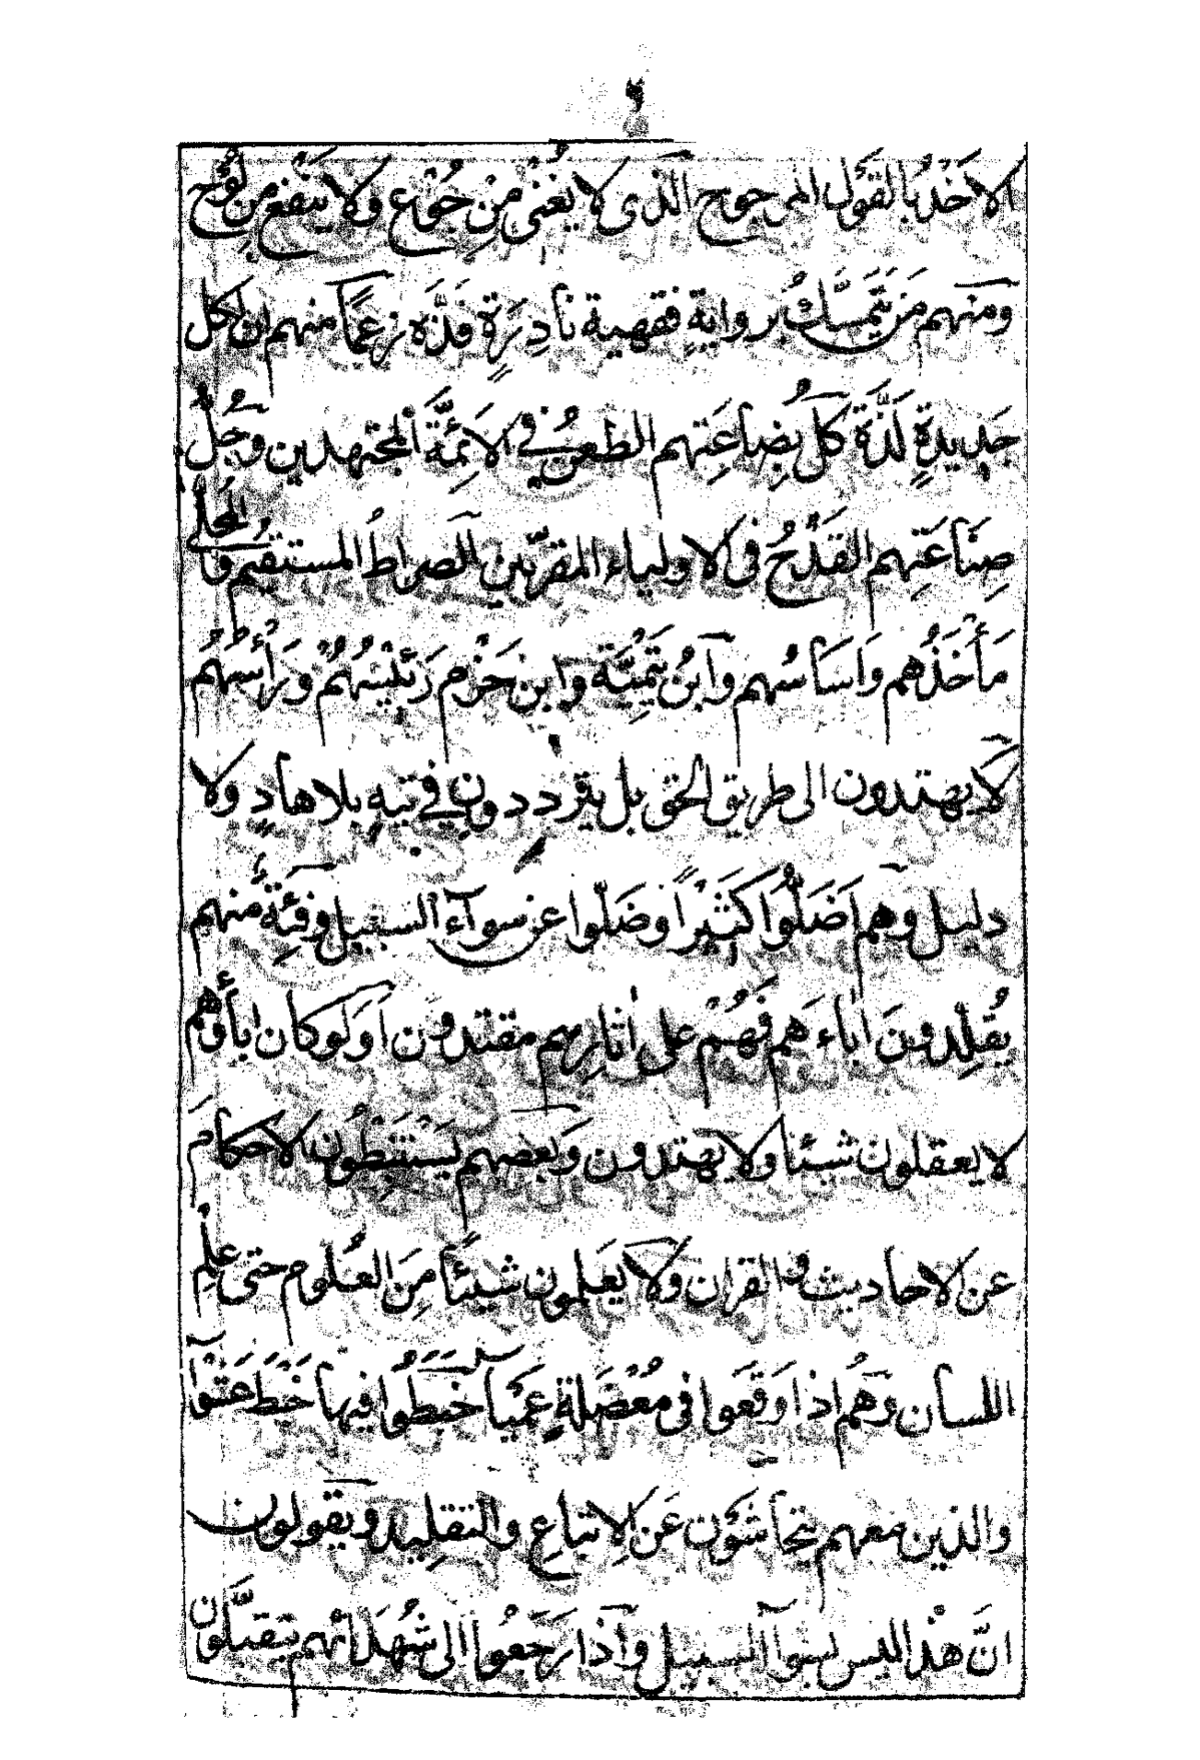 ٦
الاخذ بالقول المرجوح الّذى لا يُغنى من جُوْع ولا ينفع من لوُح
ومنهم مَن يَتَمَسَّكُ برواية فقهية نادِرَةٍ فذَّه زعمًا منهم ان لكل
جَدِيدةٍ لَذَّة كلُّ بُضاعَتِهم الطعنُ في الائِمَّة المجتهدين وجُلّ
صِنَاعَتِهم القَدْحُ فى الاولياء المقرّبين الصراطُ المستقيم والمُحلّى
مَأخَذُهم وَاَسَاسُهم وَابنُ تَيْمِيَّة وابن حَزْم رَئِيْسُهُمْ وَرَأسُهُم
لا يهتدون الى طريق الحق بل يتردّدون في تيهٍ بلا هادٍ ولا
دليل وهم اَضَلُّوا كَثِيْرًا وضَلّوا عن سوآء السبيل وفِئَةٌ منهم
يُقلِّدونَ اٰباءَهم فَهُمْ على اٰثارِهم مقتدون اَوَلو كان اٰباؤهم
لا يعقلون شيئا ولا يهتدون وَبعضهم يَسْتَنْبِطُون الاحكامَ
عن الاحاديث والقران ولا يَعلمون شيئًا مِنَ العُلوم حتى عِلْمِ
اللسان وَهُم اذا وَقَعوا فى مُعْضَلةٍ عَمْيَآءَ خَبَطُوا فيها خَبْطَ عَشْوَآ
والذين معهم يتحاشَوْن عَن الاِتباعِ والتقلِيد ويَقولون
انَّ هذا لليس لسوآ السبيل وَاِذا رَجَعُوا الى شُهَدَائهم يتقبّلُون